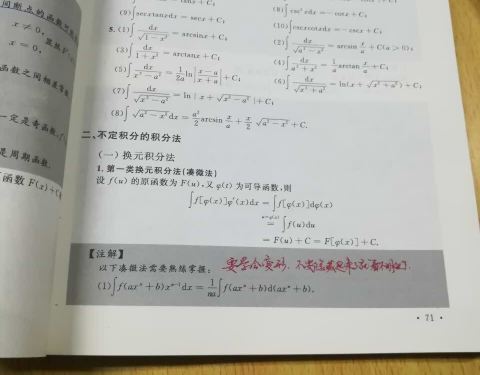 间断点的函数
x ≠ 0,
x = 0,
函数之间相差常数
一定是奇函数,
是周期函数.
函数 F(x)+C
(9)∫secxtanxdx = secx + C;
(8)∫csc²xdx = −cotx + C;
(10)∫cscxcotxdx = −cscx + C;
5. (1)∫dx/√(1−x²) = arcsinx + C;
(2)∫dx/√(a²−x²) = arcsin x/a + C(a > 0);
(3)∫dx/(1+x²) = arctanx + C;
(4)∫dx/(a²+x²) = 1/a arctan x/a + C;
(5)∫dx/(x²−a²) = 1/2a ln|(x−a)/(x+a)| + C;
(6)∫dx/√(x²+a²) = ln(x + √(x²+a²)) + C;
(7)∫dx/√(x²−a²) = ln|x + √(x²−a²)| + C;
(8)∫√(a²−x²)dx = a²/2 arcsin x/a + x/2 √(a²−x²) + C.
二、不定积分的积分法
(一) 换元积分法
1. 第一类换元积分法(凑微法)
设 f(u) 的原函数为 F(u),又 φ(x) 为可导函数,则
∫f[φ(x)]φ′(x)dx = ∫f[φ(x)]dφ(x)
u=φ(x)
= ∫f(u)du
= F(u) + C = F[φ(x)] + C.
【注解】
以下凑微法需要熟练掌握: 要学会变形,
(1)∫f(axⁿ + b)xⁿ⁻¹dx = 1/na ∫f(axⁿ + b)d(axⁿ + b).
· 71 ·